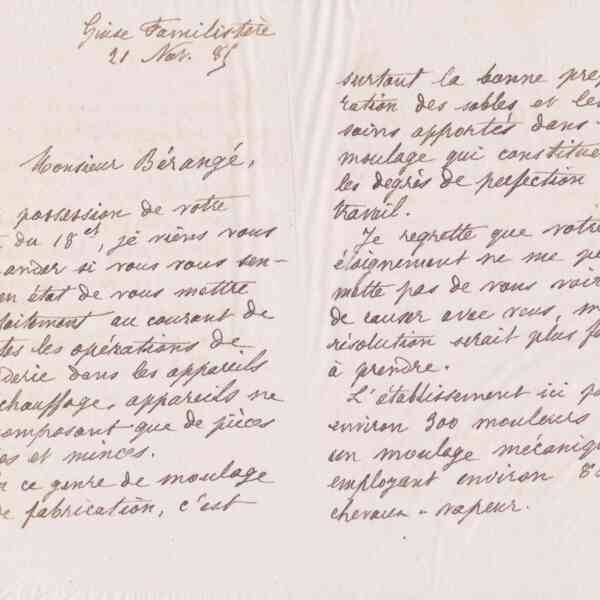 Guise Familistère
21 Nov. 85
Monsieur Bérangé,
possession de votre
du 18 ct, je viens vous
ander si vous vous sen-
en état de vous mettre
faitement au courant de
tes les opérations de
derie dans les appareils
chauffage, appareils ne
composant que de pièces
es et minces.
n ce genre de moulage
de fabrication, c'est
surtout la bonne prép
ration des sables et les
soins apportés dans
moulage qui constitue
les degrés de perfection
travail.
Je regrette que votre
éloignement ne me pe
mette pas de vous voir
de causer avec vous, m
résolution serait plus fa
à prendre.
L'établissement ici po
environ 300 mouleurs
un moulage mécaniq
employant environ 80
chevaux-vapeur.